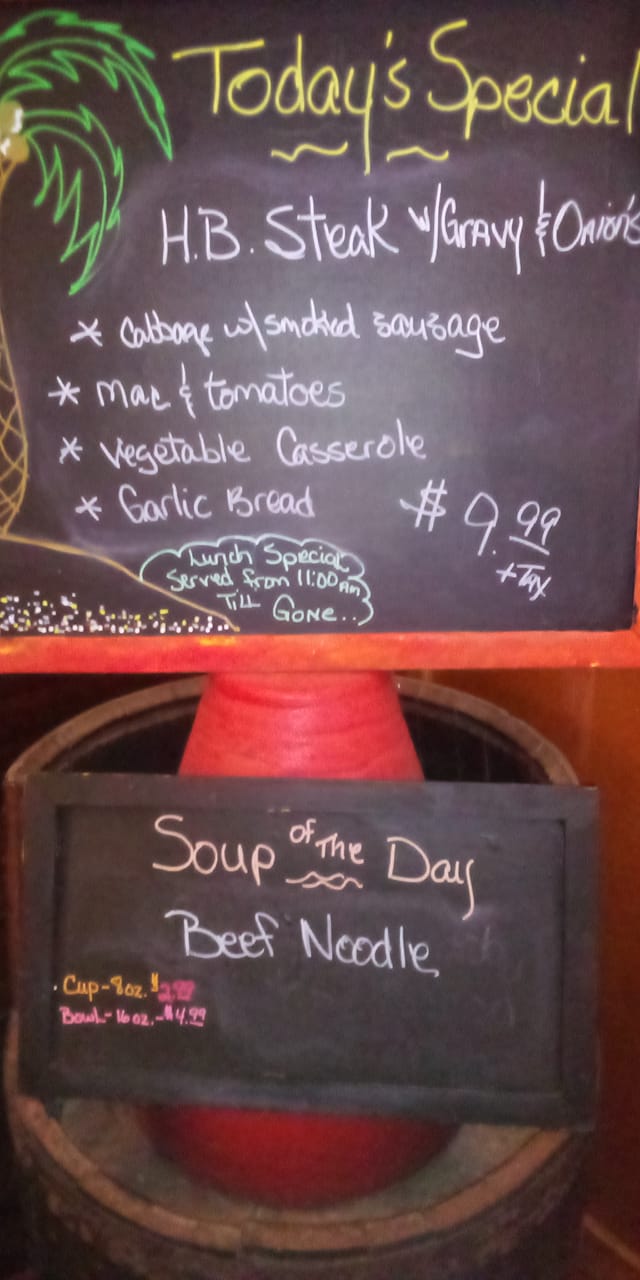 Today's Special
H.B. Steak w/Gravy & Onion's
* Cabbage w/smoked sausage
* Mac & tomatoes
* Vegetable Casserole
* Garlic Bread
$9.99
+Tax
Lunch Special
Served from 11:00 AM
Till Gone...
Soup of The Day
Beef Noodle
. Cup-8oz. $2.99
Bowl-16 oz.-$4.99